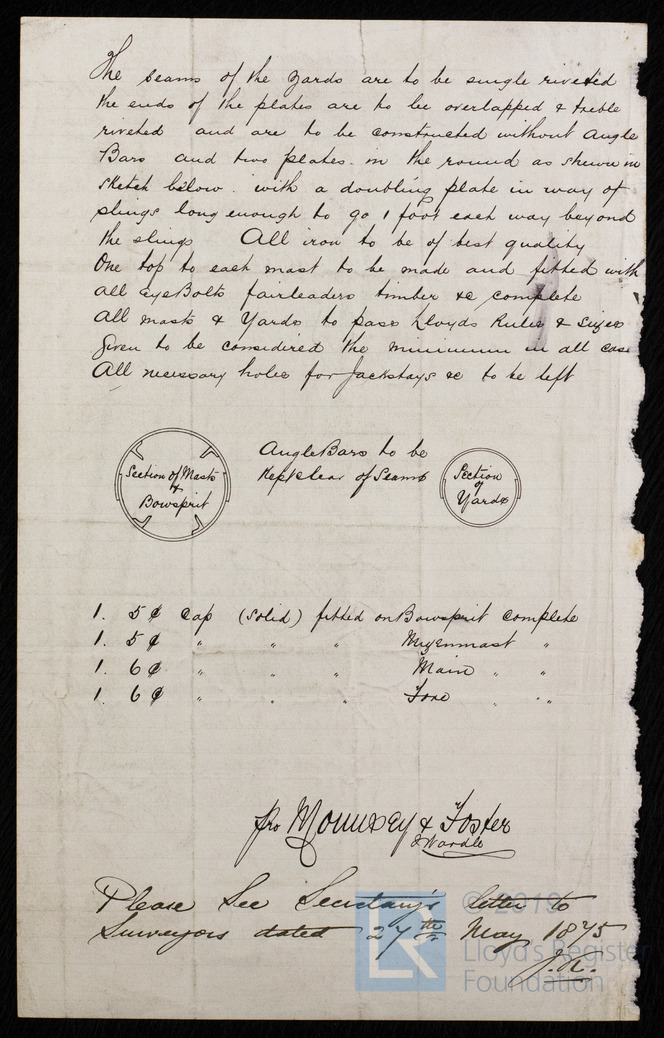 The seams of the yards are to be single riveted
the ends of the plates are to be overlapped & treble
riveted and are to be constructed without Angle
Bars and two plates in the round as shewn in
sketch below. with a doubling plate in way of
slings long enough to go 1 foot each way beyond
the slings All iron to be of best quality
One top to each mast to be made and fitted with
all EyeBolts fairleaders timber &c complete
All masts & Yards to pass Lloyds Rules & Sizes
given to be considered the minimum in all case
All necessary holes for Jackstays &c to be left
Section of Masts
&
Bowsprit
Angle Bars to be
kept clear of Seams
Section
of
Yards
1. 5 ¢ Cap (Solid) fitted on Bowsprit complete
1. 5 ¢ " " " Mizenmast "
1. 6 ¢ " " " Main " "
1. 6 ¢ " " " Fore " "
pro Mounsey & Foster
& Wardle
Please See Secretary's letter to
Surveyors dated 27th May 1875
© 2019
LR
Lloyd's Register
Foundation